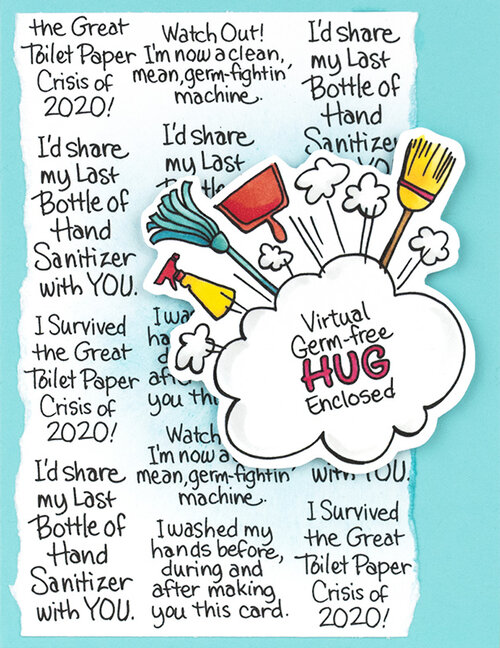 the Great
Toilet Paper
Crisis of
2020!
I'd share
my Last
Bottle of
Hand
Sanitizer
with YOU.
I Survived
the Great
Toilet Paper
Crisis of
2020!
I'd share
my Last
Bottle of
Hand
Sanitizer
with YOU.
Watch Out!
I'm now a clean,
mean, germ-fightin'
machine.
I'd share
my Last
you
Watch
I'm now a
mean, germ-fightin'
machine.
I washed my
hands before,
during and
after making
you this card.
I'd share
my Last
Bottle of
Hand
Sanitizer
YOU
Virtual
Germ-free
HUG
Enclosed
with YOU.
I Survived
the Great
Toilet Paper
Crisis of
2020!